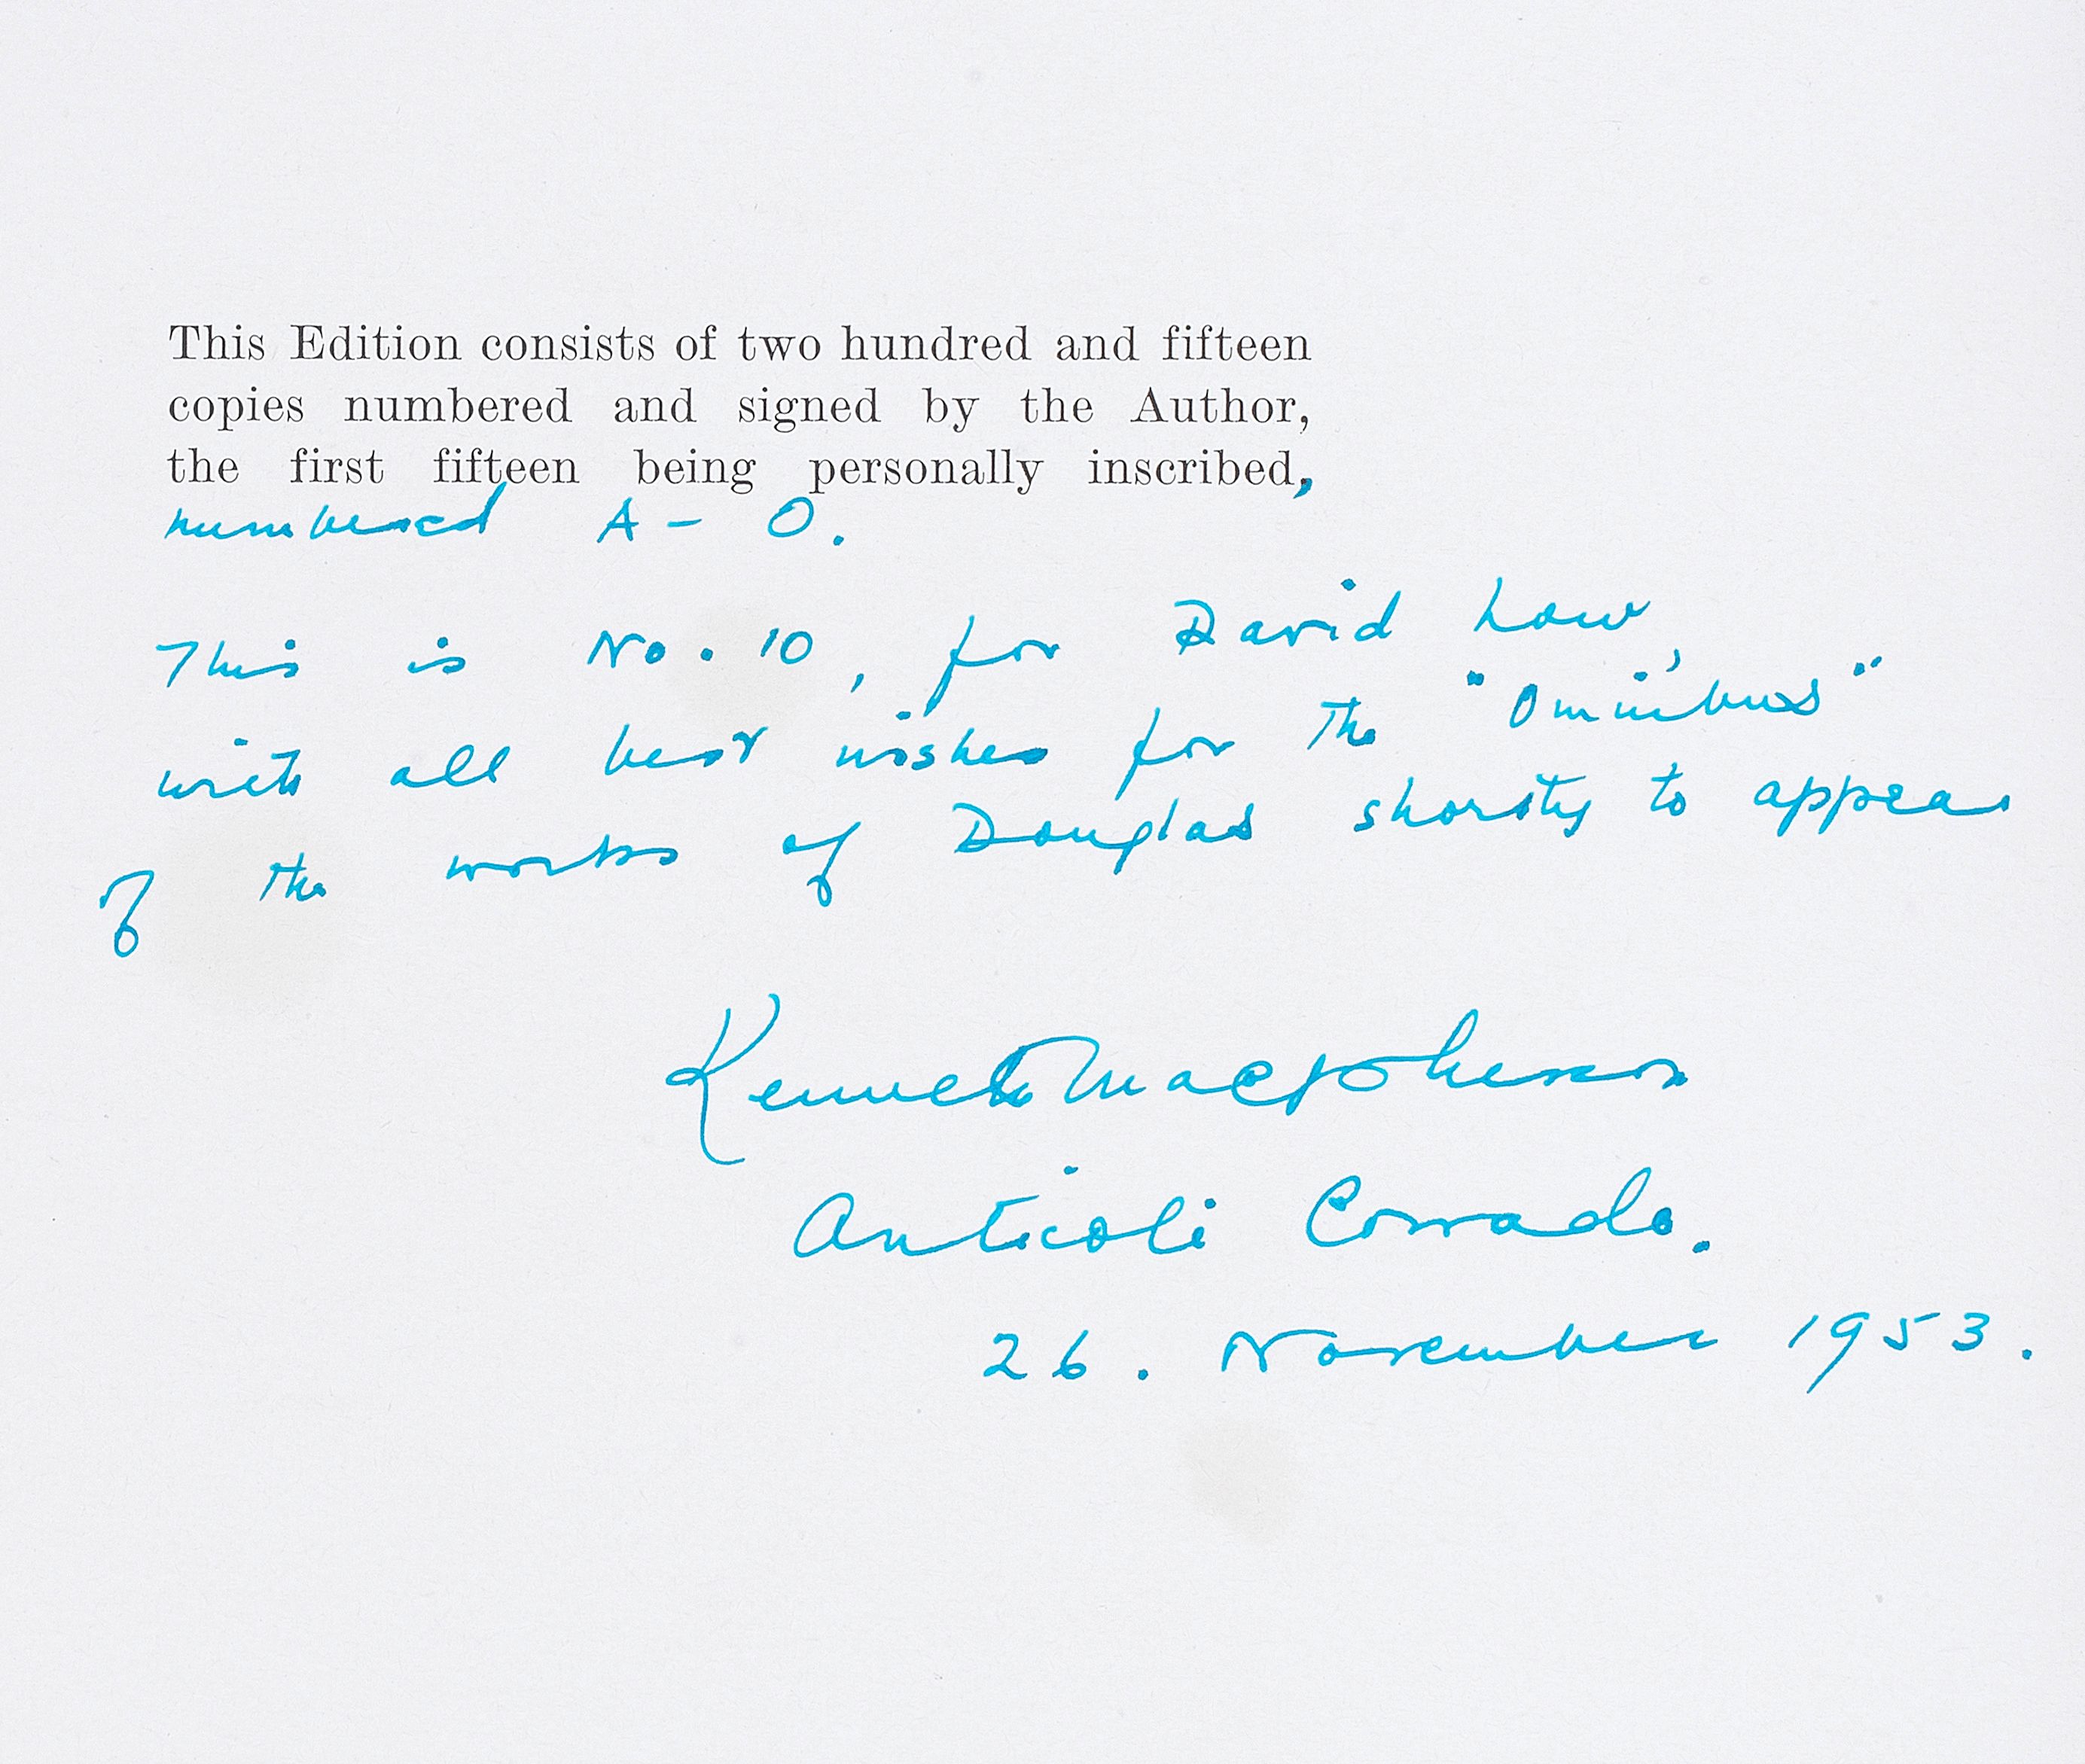 This Edition consists of two hundred and fifteen
copies numbered and signed by the Author,
the first fifteen being personally inscribed,
numbered A - O.
This is No. 10, for David Low,
with all best wishes for the "Omnibus"
of the works of Douglas shortly to appear
Kenneth Macpherson
Anticoli Corrado.
26. November 1953.